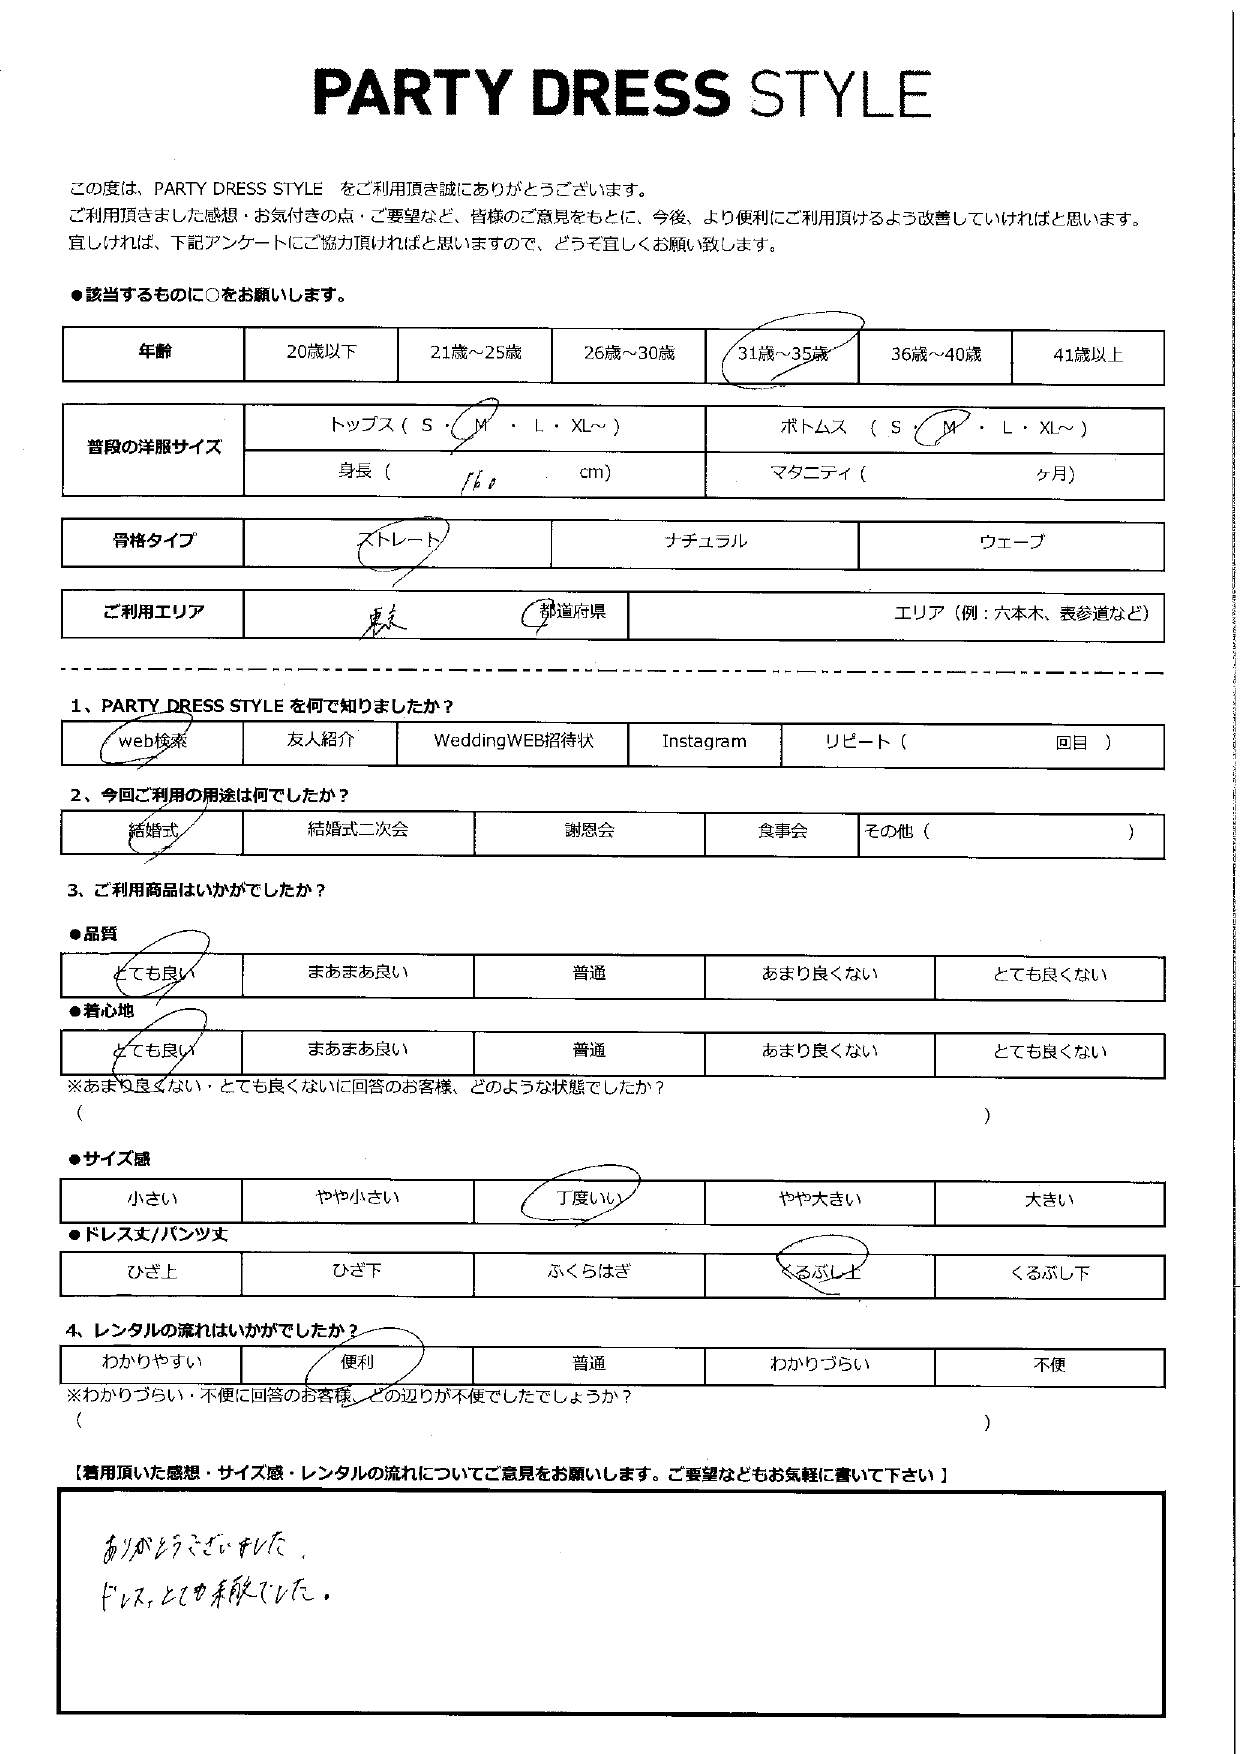 PARTY DRESS STYLE
この度は、PARTY DRESS STYLE をご利用頂き誠にありがとうございます。
ご利用頂きました感想・お気付きの点・ご要望など、皆様のご意見をもとに、今後、より便利にご利用頂けるよう改善していければと思います。
宜しければ、下記アンケートにご協力頂ければと思いますので、どうぞ宜しくお願い致します。
●該当するものに○をお願いします。
年齢 20歳以下 21歳～25歳 26歳～30歳 31歳～35歳 36歳～40歳 41歳以上
普段の洋服サイズ トップス ( S ・ M ・ L ・ XL～ ) ボトムス ( S ・ M ・ L ・ XL～ )
身長 ( 160 cm) マタニティ ( ヶ月)
骨格タイプ ストレート ナチュラル ウェーブ
ご利用エリア 東京 都道府県 エリア（例：六本木、表参道など）
1、PARTY DRESS STYLE を何で知りましたか？
web検索 友人紹介 WeddingWEB招待状 Instagram リピート ( 回目 )
2、今回ご利用の用途は何でしたか？
結婚式 結婚式二次会 謝恩会 食事会 その他 ( )
3、ご利用商品はいかがでしたか？
●品質
とても良い まあまあ良い 普通 あまり良くない とても良くない
●着心地
とても良い まあまあ良い 普通 あまり良くない とても良くない
※あまり良くない・とても良くないに回答のお客様、どのような状態でしたか？
( )
●サイズ感
小さい やや小さい 丁度いい やや大きい 大きい
●ドレス丈/パンツ丈
ひざ上 ひざ下 ふくらはぎ くるぶし上 くるぶし下
4、レンタルの流れはいかがでしたか？
わかりやすい 便利 普通 わかりづらい 不便
※わかりづらい・不便に回答のお客様、どの辺りが不便でしたでしょうか？
( )
【着用頂いた感想・サイズ感・レンタルの流れについてご意見をお願いします。ご要望などもお気軽に書いて下さい】
ありがとうございました.
ドレス,とても素敵でした.